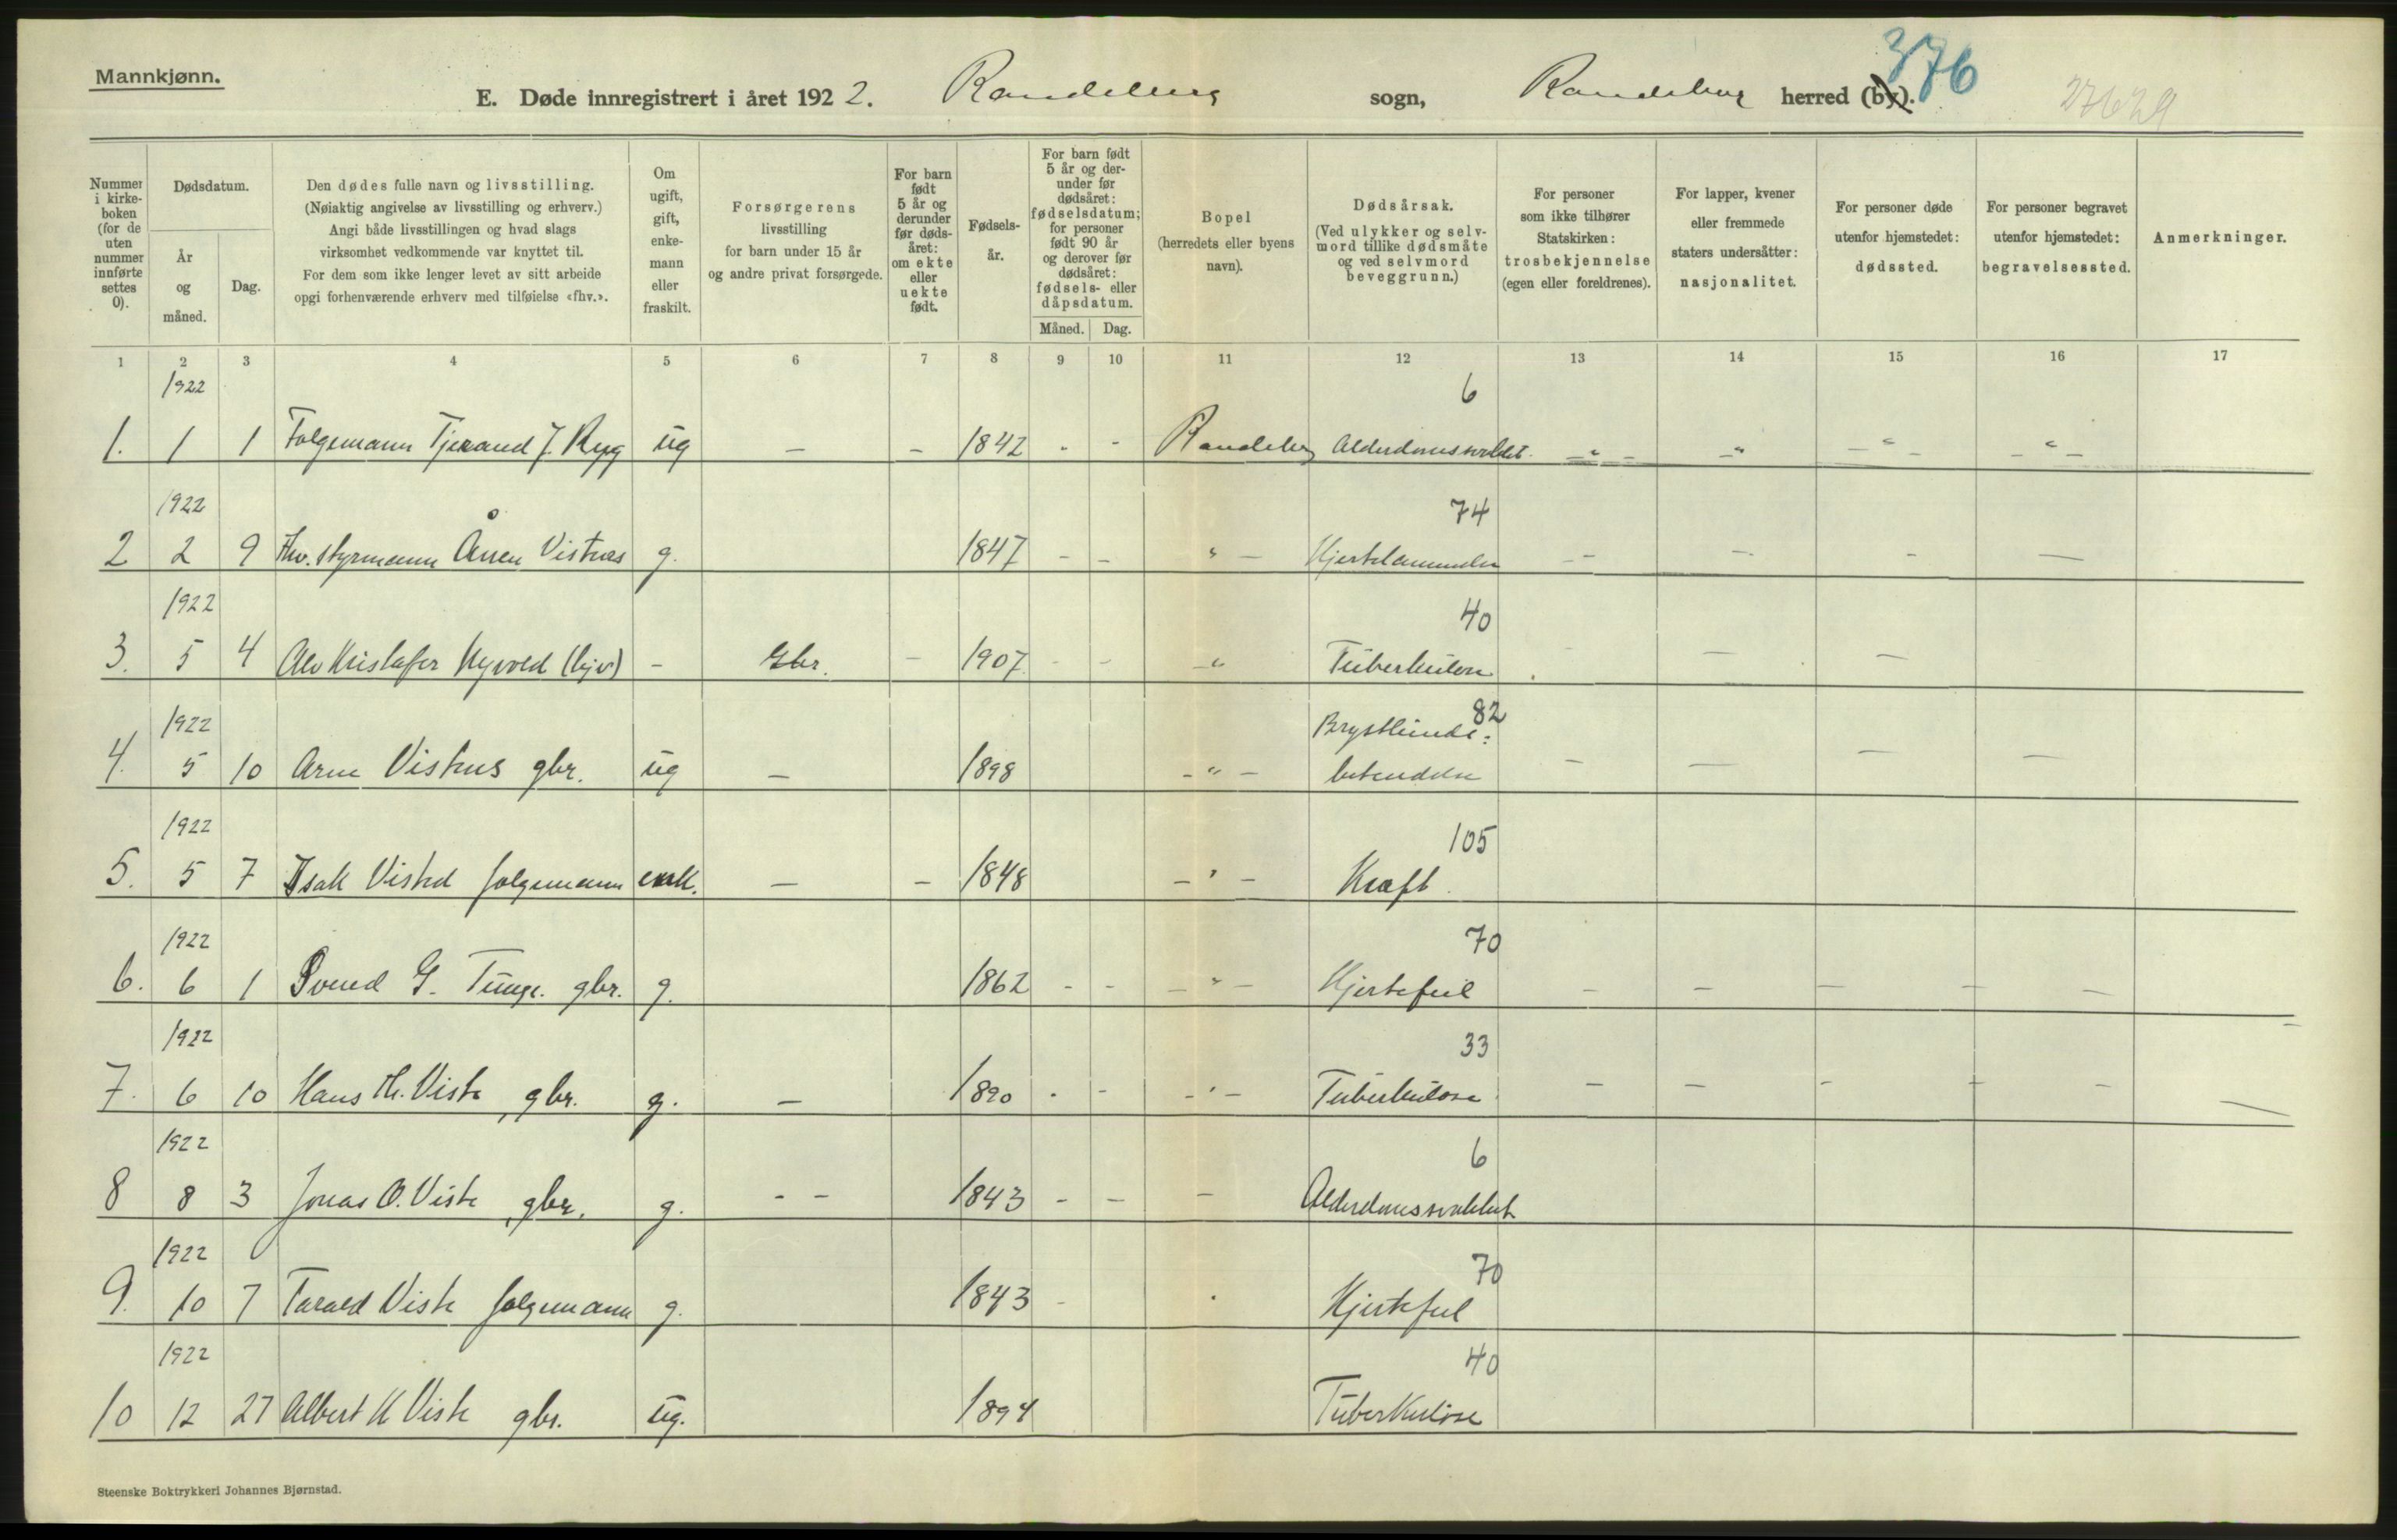 Mannkjønn.
E. Døde innregistrert i året 1922. Randeberg sogn, Randeberg herred (by).
376
27629
Nummer i kirkeboken (for de uten nummer innførte settes 0).
Dødsdatum.
År og måned.
Dag.
Den dødes fulle navn og livsstilling.
(Nøiaktig angivelse av livsstilling og erhverv.)
Angi både livsstillingen og hvad slags
virksomhet vedkommende var knyttet til.
For dem som ikke lenger levet av sitt arbeide
opgi forhenværende erhverv med tilføielse «fhv.».
Om ugift, gift, enkemann eller fraskilt.
Forsørgerens
livsstilling
for barn under 15 år
og andre privat forsørgede.
For barn født 5 år og derunder før dødsåret: om ekte eller uekte født.
Fødselsår.
For barn født 5 år og derunder før dødsåret: fødselsdatum; for personer født 90 år og derover før dødsåret: fødsels- eller dåpsdatum.
Måned. Dag.
Bopel
(herredets eller byens
navn).
Dødsårsak.
(Ved ulykker og selvmord tillike dødsmåte og ved selvmord beveggrunn.)
For personer
som ikke tilhører
Statskirken:
trosbekjennelse
(egen eller foreldrenes).
For lapper, kvener
eller fremmede
staters undersåtter:
nasjonalitet.
For personer døde
utenfor hjemstedet:
dødssted.
For personer begravet
utenfor hjemstedet:
begravelsessted.
Anmerkninger.
1 2 3 4 5 6 7 8 9 10 11 12 13 14 15 16 17
1922 6
1. 1 1 Folgemann Tjerand J. Ryg ug — — 1842 - - Randeberg Alderdomssvakhet. —"— —" —"— —"—
1922 74
2 2 9 Fhv. styrmann Ånen Vistnes g. 1847 - - " — Hjertelammelse — — - —
1922 40
3. 5 4 Alv Kristofer Nyvold (hjv) - Gbr. — 1907 - - —" Tuberkulose - — —
1922 82
Brysthinde-
4. 5 10 Arne Vistnes gbr. ug — 1898 —"— betendelse — — — —
1922 105
5. 5 7 Isak Visted folgemann enk. — — 1848 —"— Kræft.
1922 70
6. 6 1 Svend G. Tunge. gbr. g. 1862 - - —"— Hjertefeil — — — — —
1922 33
7. 6 10 Hans Th. Viste, gbr. g. — 1890 - - —"— Tuberkulose — — - — —
1922 6
8 8 3 Jonas O. Viste, gbr. g. - - 1843 - — — Alderdomssvakhet
1922 70
9. 10 7 Tarald Viste folgemann g. 1843 - Hjertefeil
1922 40
10 12 27 Albert K Viste gbr. ug. 1894 Tuberkulose
Steenske Boktrykkeri Johannes Bjørnstad.